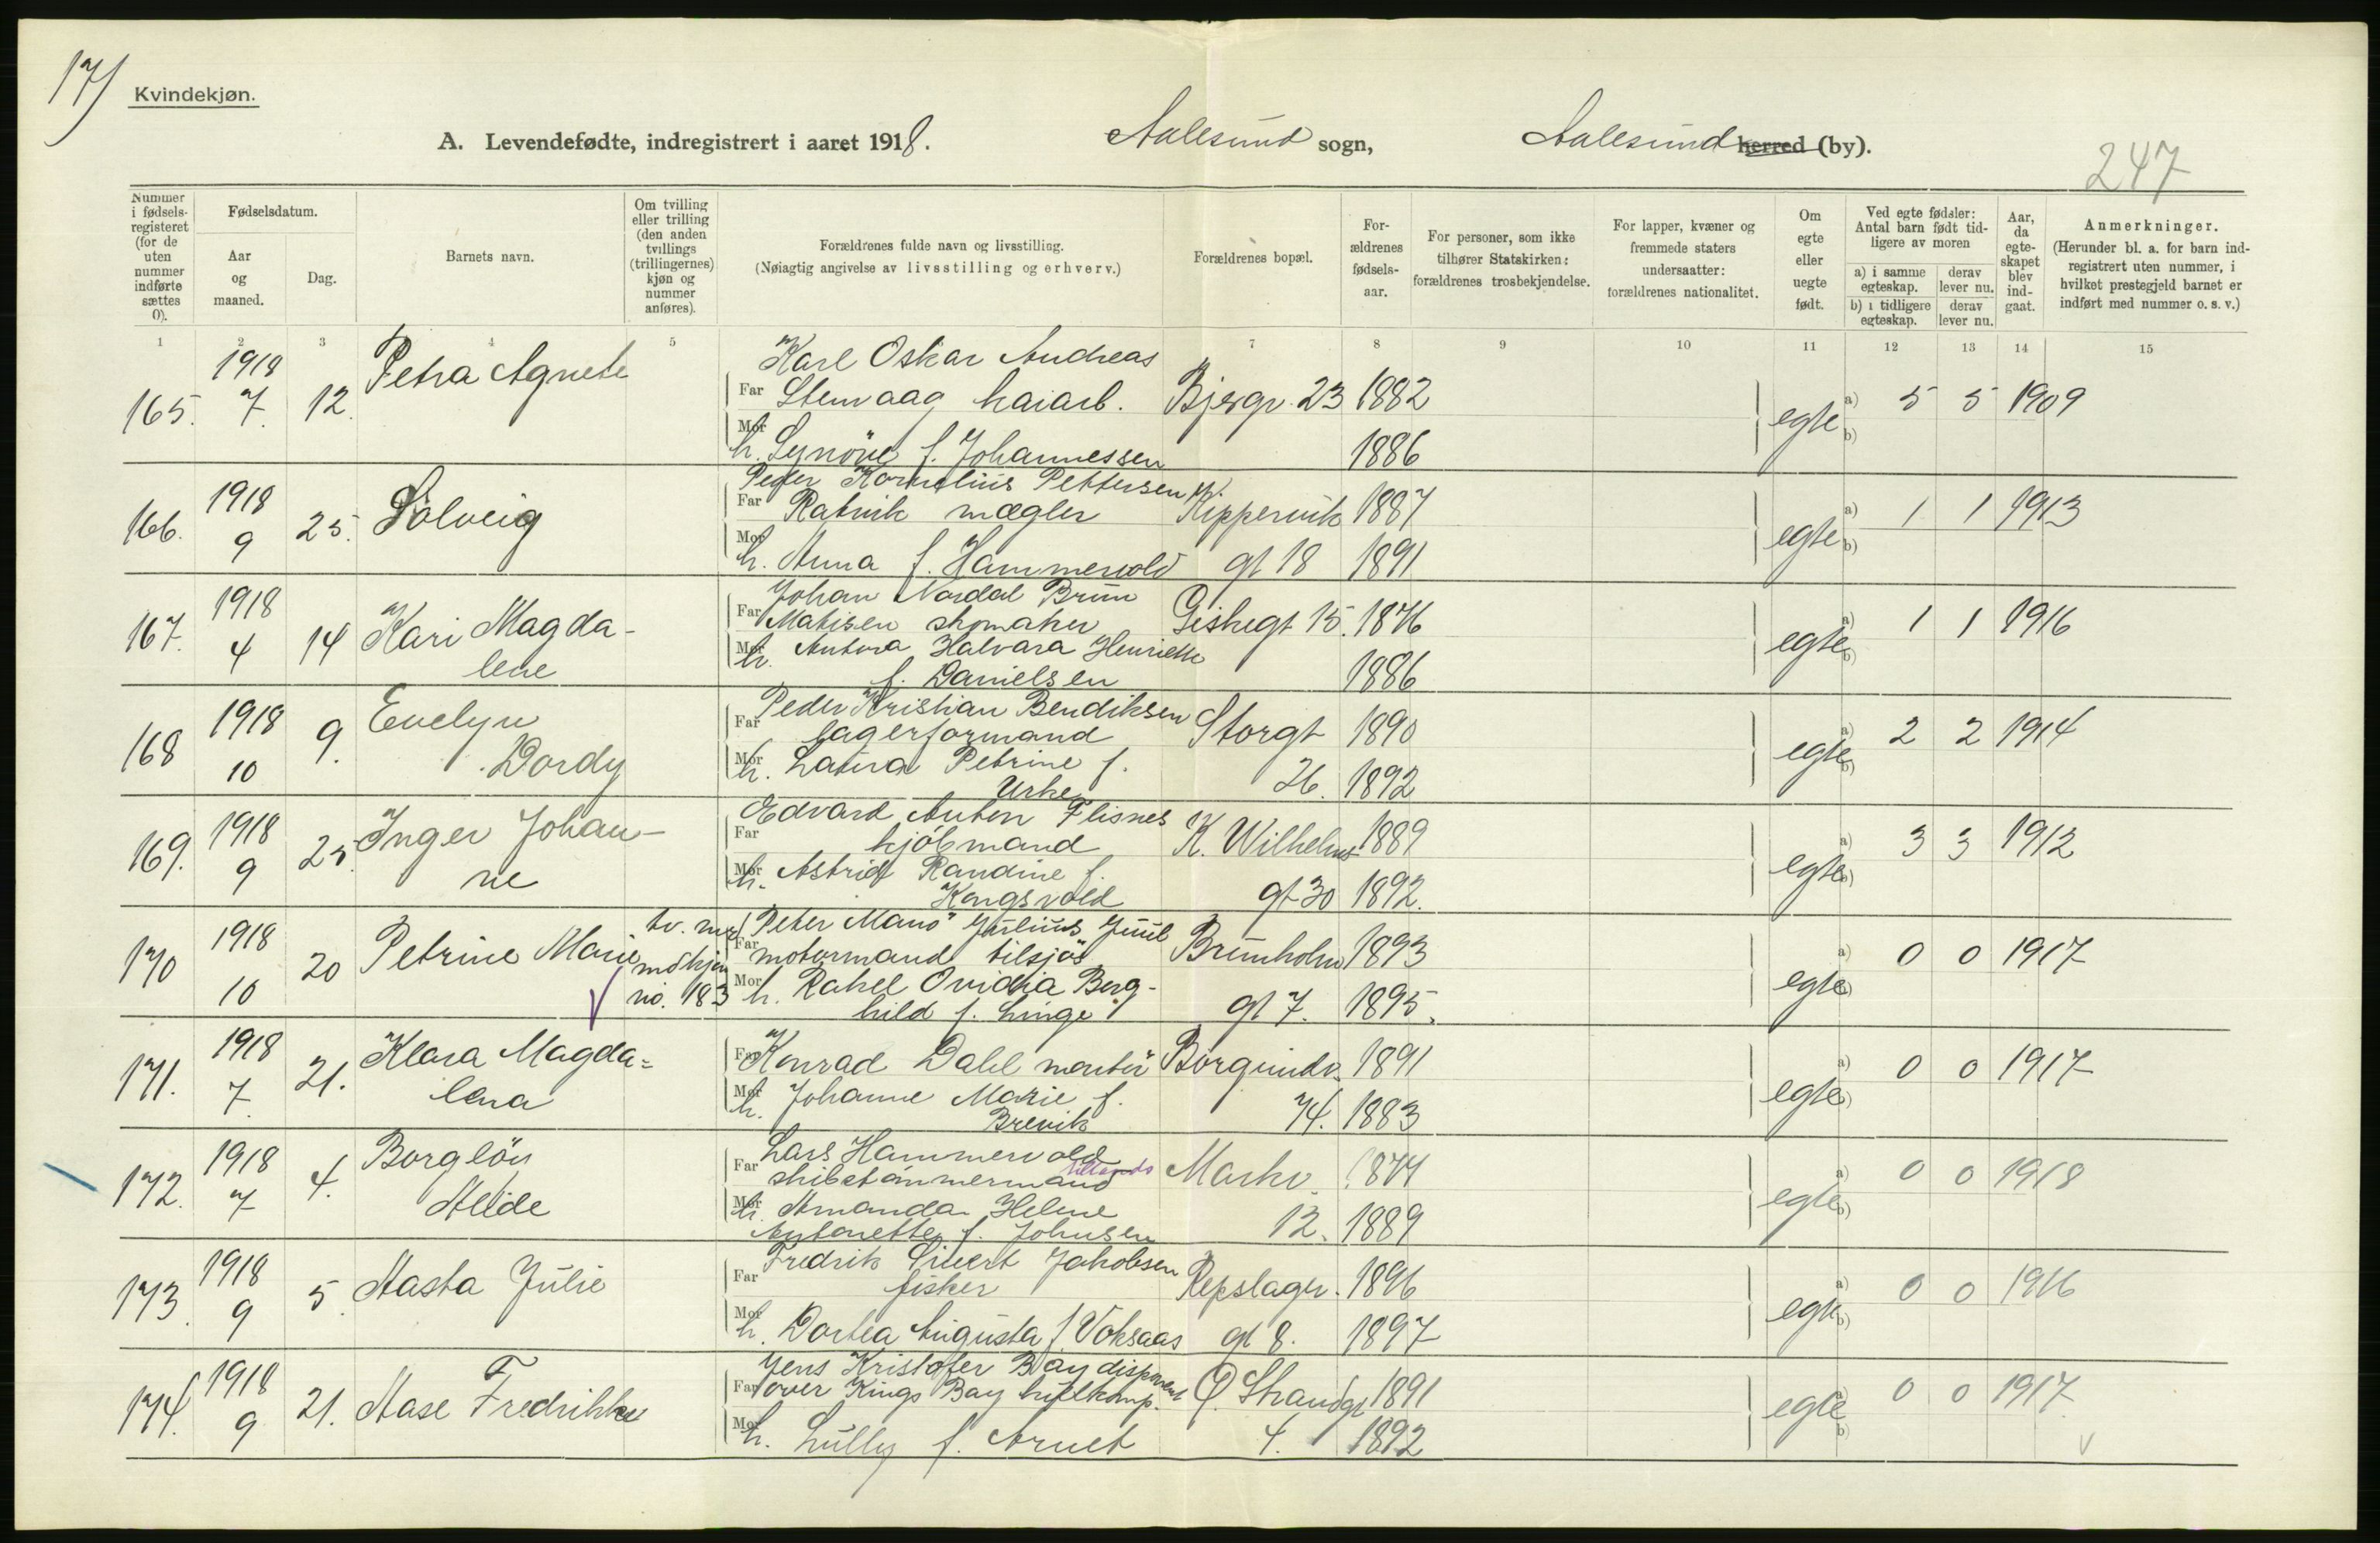 17)
Kvindekjøn.
A. Levendefødte, indregistrert i aaret 1918.
Aalesund sogn,
Aalesund herred (by).
247
Nummer i fødsels-registeret (for de uten nummer indførte sættes 0).
Fødselsdatum.
Aar og maaned.
Dag.
Barnets navn.
Om tvilling eller trilling (den anden tvillings (trillingernes) kjøn og nummer anføres).
Forældrenes fulde navn og livsstilling.
(Nøiagtig angivelse av livsstilling og erhverv.)
Forældrenes bopæl.
For-ældrenes fødsels-aar.
For personer, som ikke tilhører Statskirken: forældrenes trosbekjendelse.
For lapper, kvæner og fremmede staters undersaatter: forældrenes nationalitet.
Om egte eller uegte født.
Ved egte fødsler: Antal barn født tid-ligere av moren
a) i samme egteskap.
derav lever nu.
b) i tidligere egteskap.
derav lever nu.
Aar, da egte-skapet blev ind-gaat.
Anmerkninger.
(Herunder bl. a. for barn ind-registrert uten nummer, i hvilket prestegjeld barnet er indført med nummer o. s. v.)
1 2 3 4 5 7 8 9 10 11 12 13 14 15
165. 1918 7. 12. Petra Agnete
Karl Oskar Andreas
Far Stenvaag haiarb. Bjergv. 23 1882
Mor h. Synöve f. Johannessen 1886
egte a) b) 5 5 1909
166. 1918 9 25. Solveig
Peder Kornelius Pettersen
Far Ratvik mægler Kippervik 1887
Mor h. Anna f. Hammervold gt 18 1891
egte a) b) 1 1 1913
167. 1918 4 14 Kari Magda-
lene
Johan Nordal Brun
Far Matisen skomaker Giskegt 15. 1876
Mor h. Antora Halvara Henriette
f. Danielsen 1886
egte a) b) 1 1 1916
168 1918 10 9. Evelyn
Dordy
Peder Kristian Bendiksen
Far lagerformand Storgt 1890
Mor h. Laura Petrine f.
Urke 26. 1892
egte a) b) 2 2 1914
169. 1918 9 25. Inger Johan-
ne
Edvard Anton Flisnes
Far kjöbmand K. Wilhelms 1889
Mor h. Astrid Randine f.
Kongsvold gt 30 1892.
egte a) b) 3 3 1912
170 1918 10 20 Petrine Marie
tv. med
mdkjön
no. 183
Peter Mans Julius Juul
Far motormand tilsjös Brunholm 1893
Mor h. Rakel Ovidia Borg-
hild f. Linge gt 7. 1895.
egte a) b) 0 0 1917
171. 1918 7. 21. Klara Magda=
lena
Far Konrad Dahl montör Borgundv. 1891
Mor h. Johanne Marie f.
Brevik 74. 1883
egte a) b) 0 0 1917
172. 1918 7 4. Borglöy
Alide
Lars Hammervold
Far skibstömmermand Markv. 1874
Mor h. Amanda Helene
Antonette f. Johnsen 12. 1889
egte a) b) 0 0 1918
173. 1918 9 5. Aasta Julie
Fredrik Sivert Jakobsen
Far fisker Repslagr. 1896
Mor h. Dortea Augusta f. Voksaas gt 8. 1897
egte a) b) 0 0 1916
174. 1918 9 21. Aase Fredrikke
Jens Kristofer Bay disponent
Far over Kings Bay kulkomp. Ø. Strandgt 1891
Mor h. Lully f. Arnet 4. 1892
egte a) b) 0 0 1917